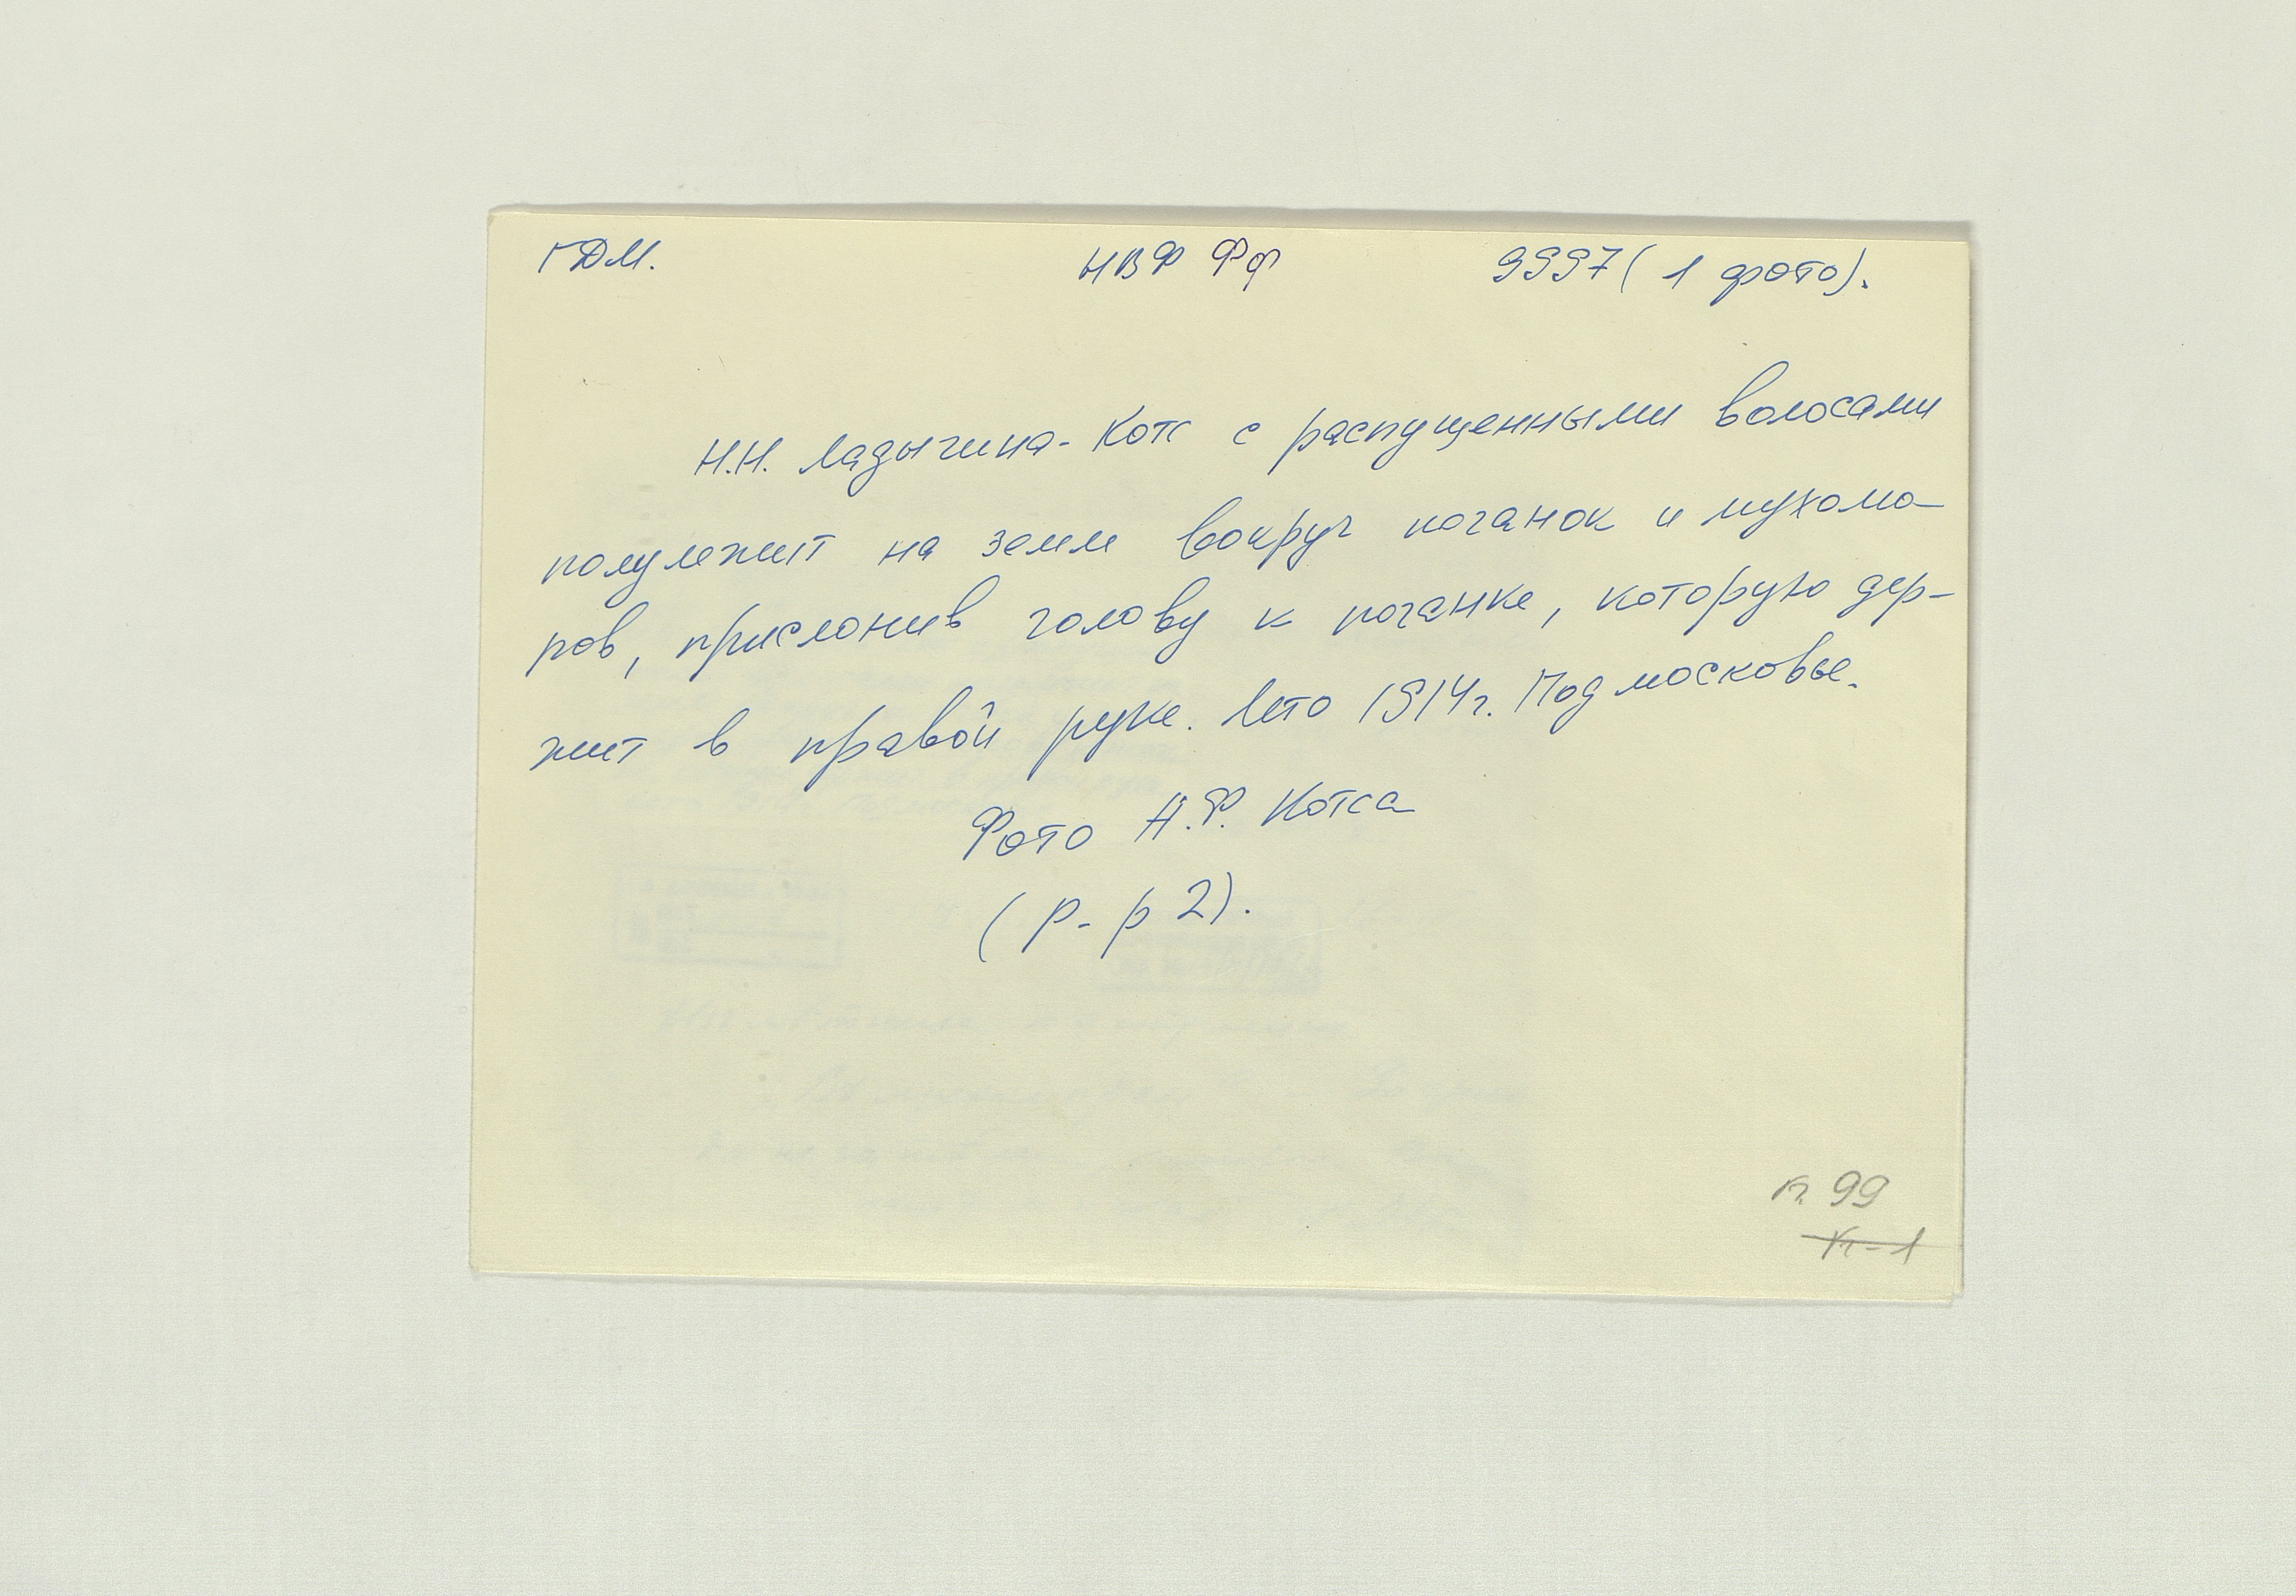 ГДМ. НВФ Фф 9997 (1 фото).
Н.Н. Ладыгина-Котс с распущенными волосами
полулежит на земле вокруг поганок и мухомо-
ров, прислонив голову к поганке, которую дер-
жит в правой руке. Лето 1914г. Подмосковье.
Фото А.Ф. Котса
(р-р 2).
п. 99